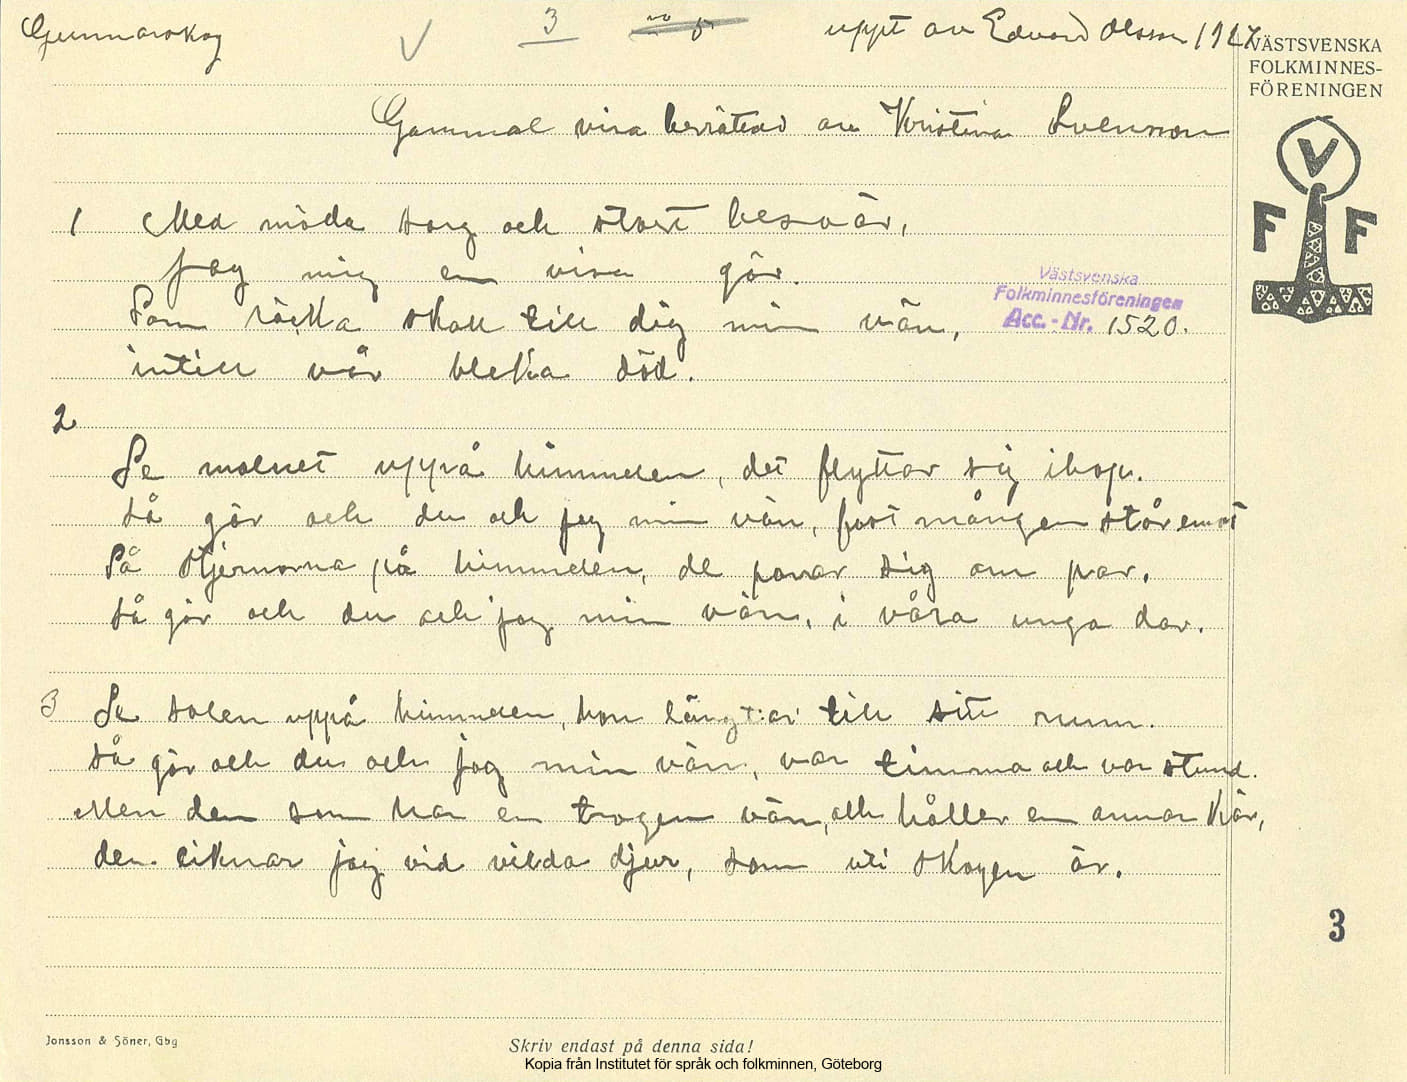 Gunnarskog 3 no 5 uppt av Edvard Olsson 1927
VÄSTSVENSKA
FOLKMINNES-
FÖRENINGEN
V
F F
Gammal visa berättad av Kristina Svensson
1 Med möda sorg och stort besvär,
jag mig en visa gör.
Västsvenska
Folkminnesföreningen
Acc.-Nr. 1520.
Som räcka skall till dig min vän,
intill vår bleka död.
2
Se molnet uppå himmelen, det flyttar sig ihop.
så gör och du och jag min vän, fast mången står emot
Så stjernorna på himmelen, de parar sig om par.
så gör och du och jag min vän, i våra unga dar.
3 Se solen uppå himmelen, hon längtar till sitt rum.
så gör och du och jag min vän, var timma och var stund.
Men den som har en trogen vän, och håller en annan kär,
den liknar jag vid vilda djur, som uti skogen är.
3
Jonsson & Söner, Gbg
Skriv endast på denna sida!
Kopia från Institutet för språk och folkminnen, Göteborg